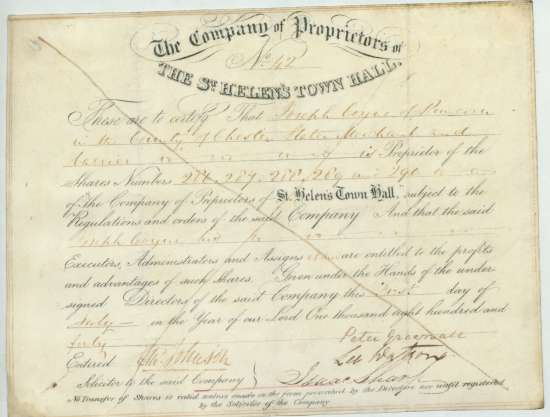 The Company of Proprietors of
No. 42
THE St. HELEN'S TOWN HALL.
These are to certify That Joseph Coyne of Runcorn
in the County of Chester Slate Merchant and
is Proprietor of the
Shares Numbers 289 and 290
of the Company of Proprietors of St. Helen's Town Hall, subject to the
Regulations and orders of the said Company And that the said
Joseph Coyne his
Executors, Administrators and Assigns are entitled to the profits
and advantages of such Shares. Given under the Hands of the under-
signed Directors of the said Company this first day of
July in the Year of our Lord One thousand eight hundred and
forty
Peter Greenall
Entered Johnson
Solicitor to the said Company
Isaac Sharp
No Transfer of Shares is valid unless made in the form prescribed by the Directors and until registered
by the Solicitor of the Company